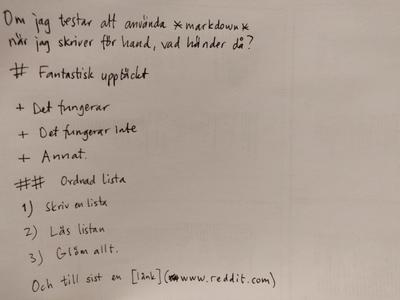 Om jag testar att använda *markdown*
när jag skriver för hand, vad händer då?
# Fantastisk upptäckt
+ Det fungerar
+ Det fungerar inte
+ Annat.
## Ordnad lista
1) Skriv en lista
2) Läs listan
3) Glöm allt.
Och till sist en [länk](www.reddit.com)